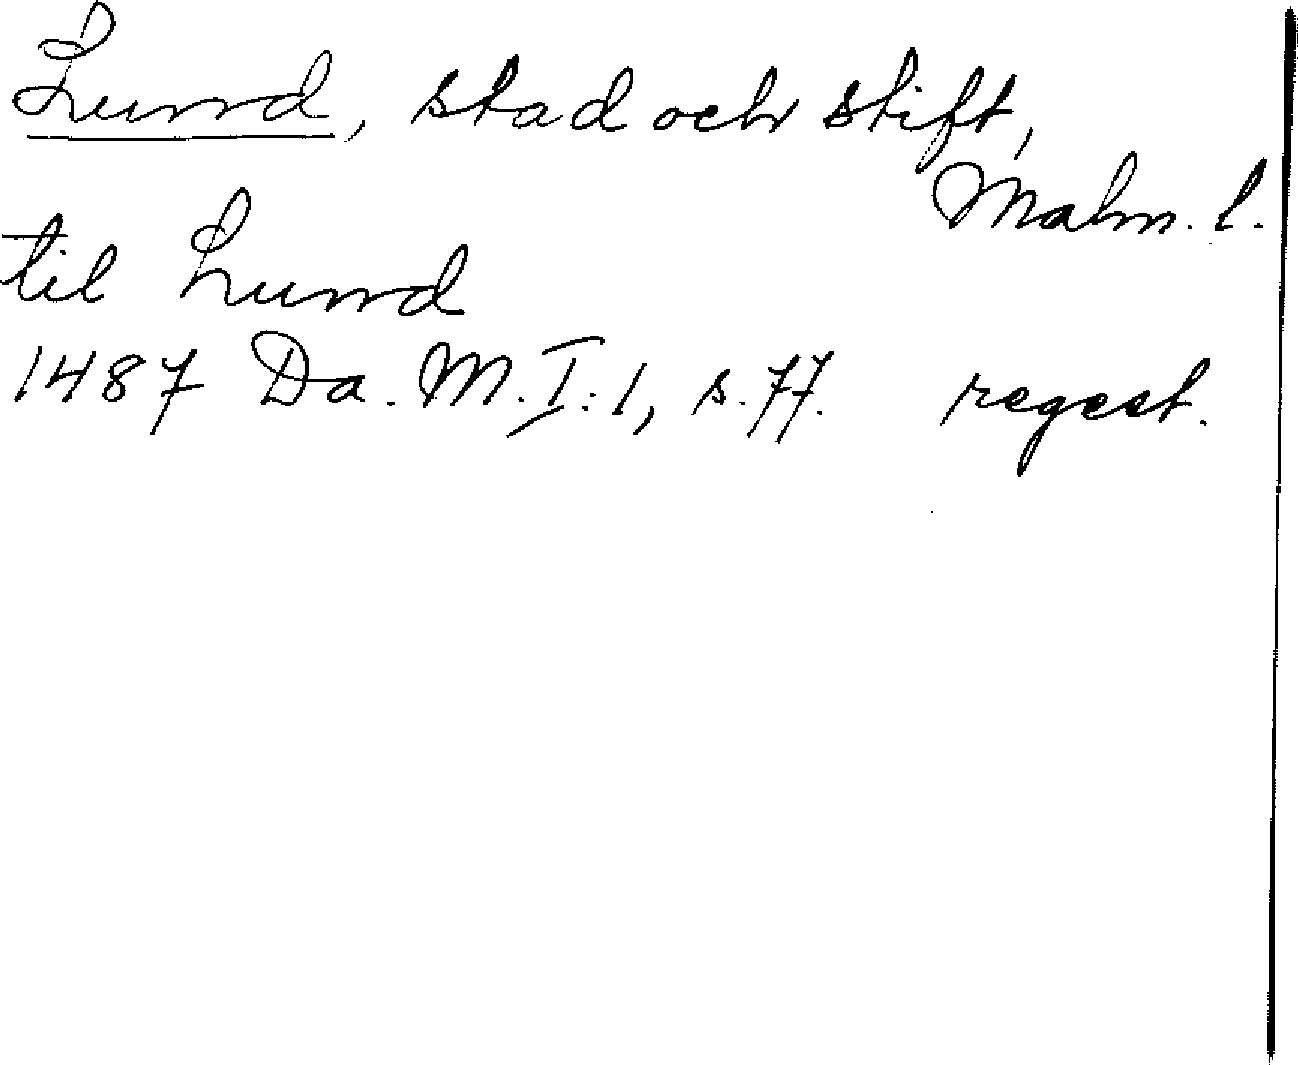 Lund, stad och stift,
Malm. l.
til Lund
1487 Da. M. I:1, s. 77. regest.